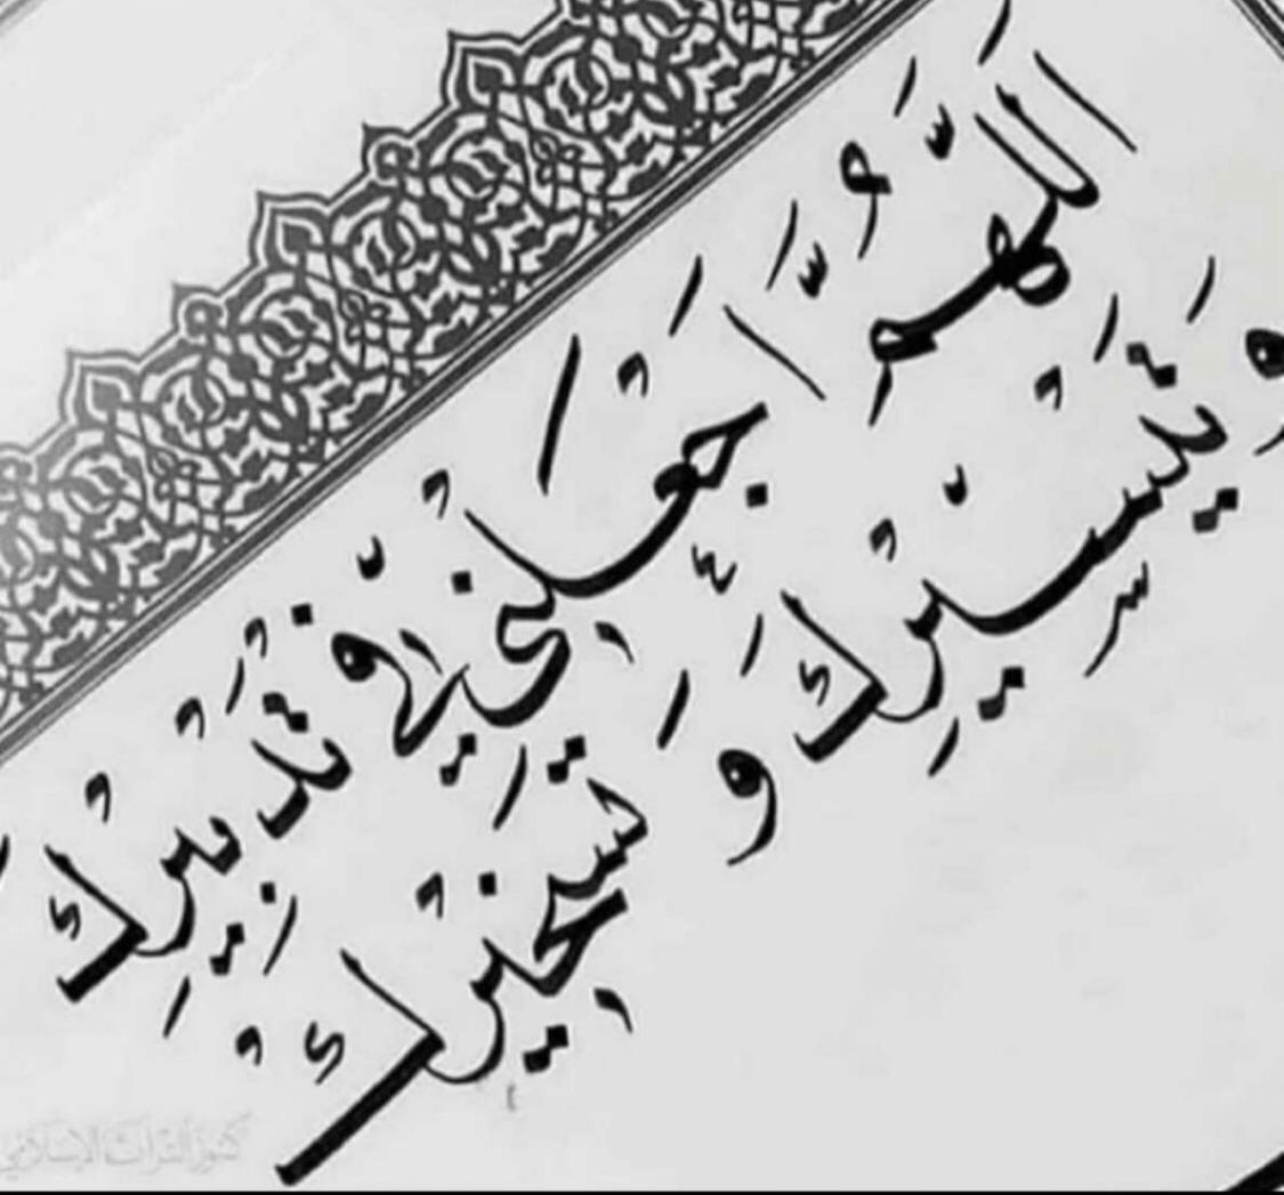 اللَّهُمَّ اجْعَلْنِي فِي تَدْبِيرِكْ
وَ تَيْسِيرِكْ وَ تَسْخِيرِكْ
كنوز التراث الإسلامي